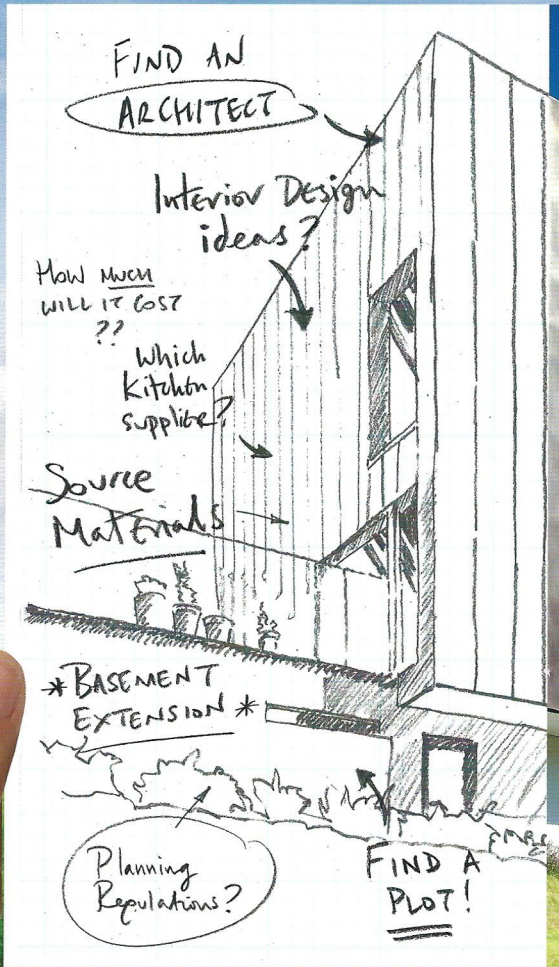 FIND AN
ARCHITECT
Interior Design
ideas?
HOW MUCH
WILL IT COST
??
Which
Kitchen
supplier?
Source
Materials
*BASEMENT
EXTENSION*
Planning
Regulations?
FIND A
PLOT!